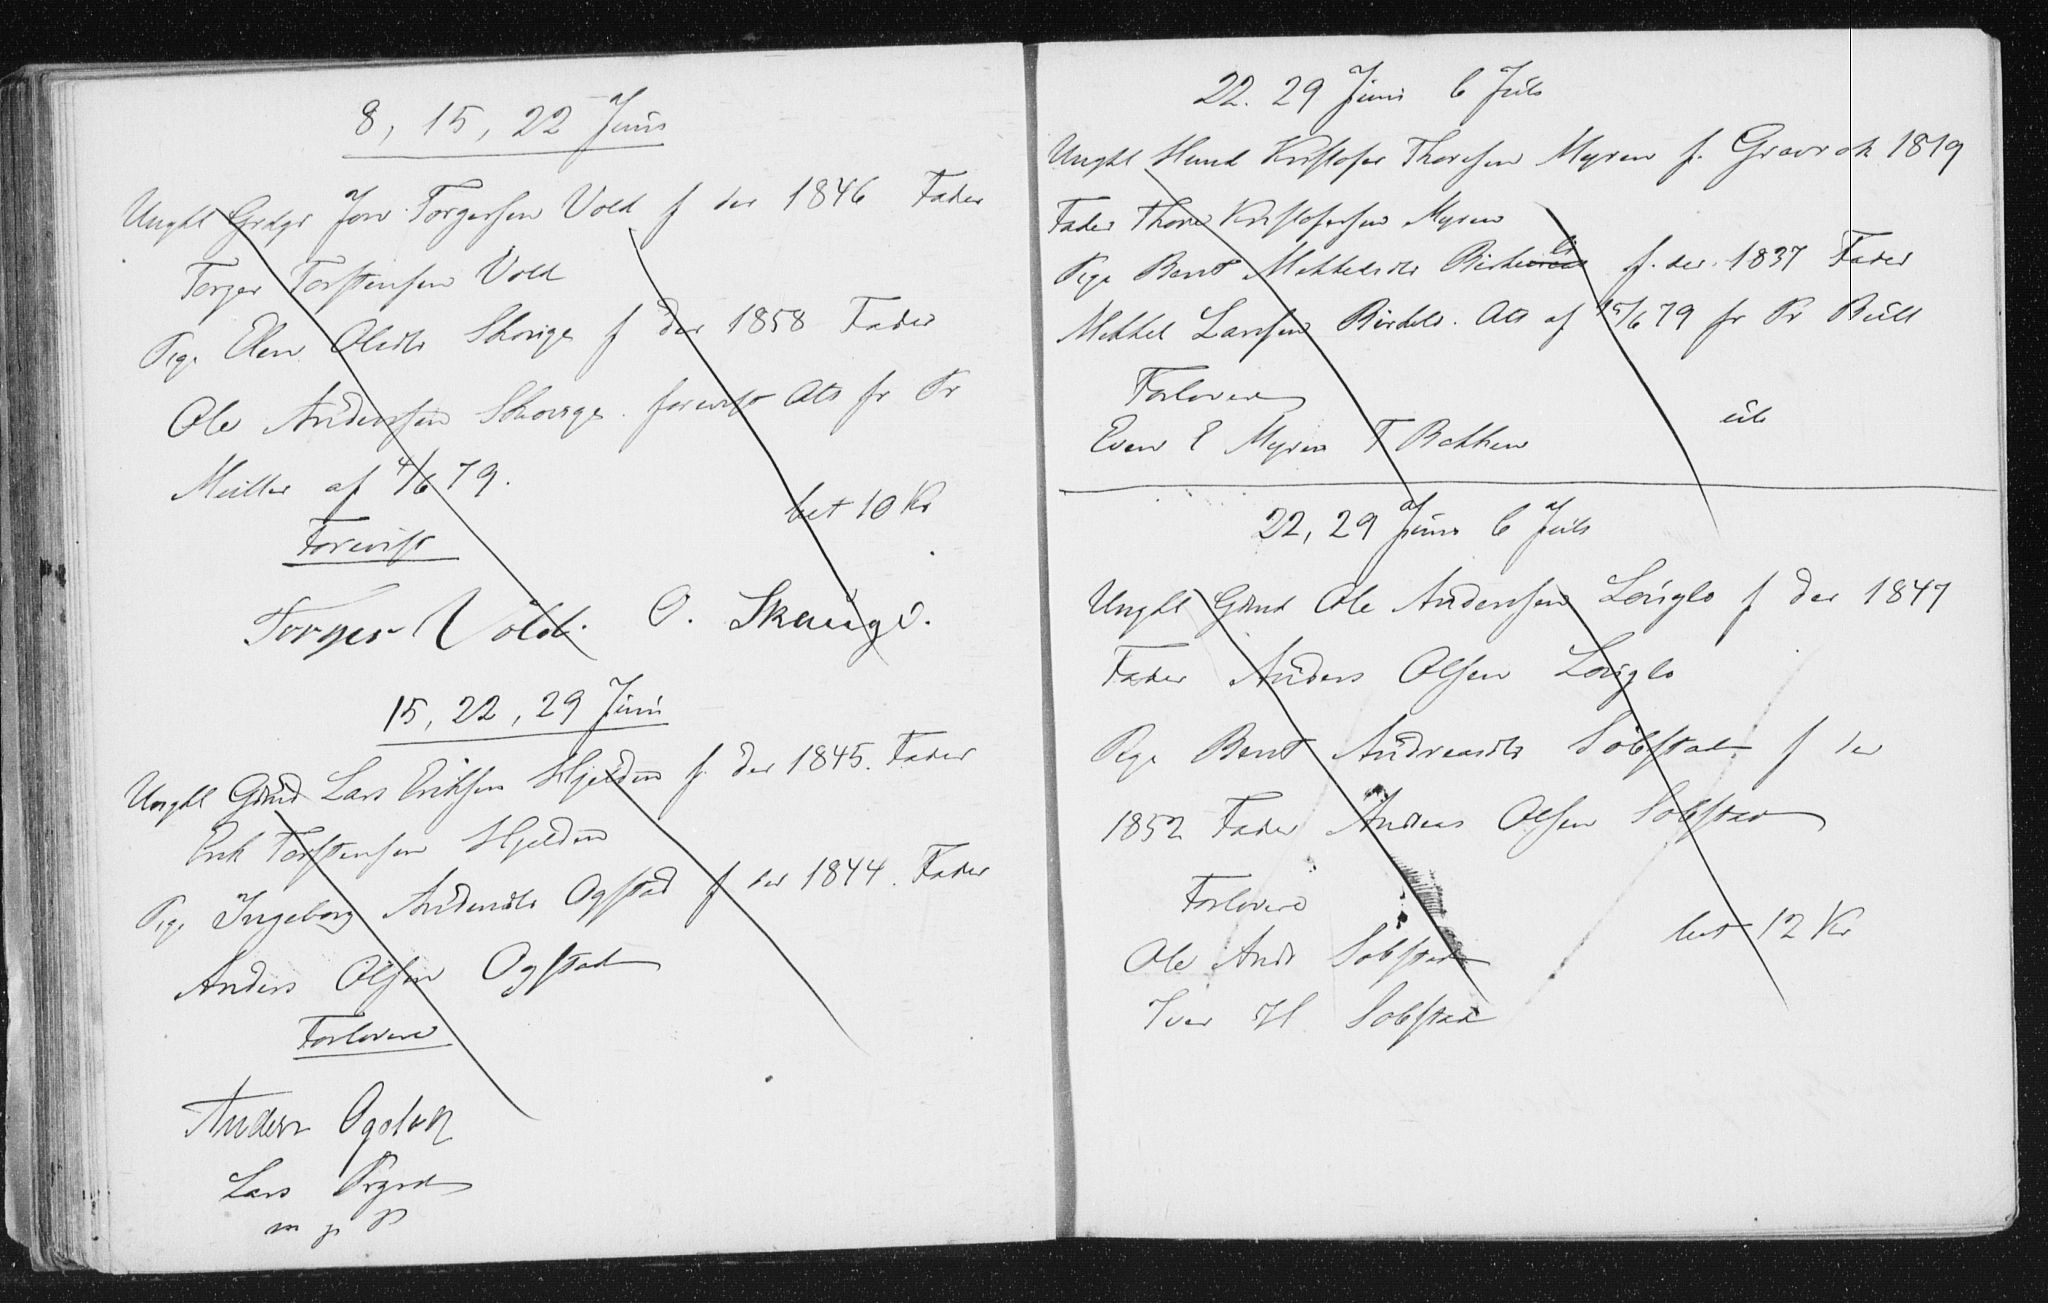 8, 15, 22 Juni
Ungkl Grdgr Jon Torgersen Vold f der 1846 Fader
Torger Torstensen Vold
Pige Elen Olsdtr Skouge f der 1858 Fader
Ole Andersen Skouge. forevist Att fr Pr
Müller af 4/6 79.
bet 10 Kr
Forevist
Torger Vold. O. Skauge.
15, 22, 29 Juni
Ungkl Gdmd Lars Eriksen Hjelden f. der 1845. Fader
Erik Torstensen Hjelden
Pige Ingeborg Andersdtr Ogstad f der 1844. Fader
Anders Olsen Ogstad
Forlovere
Anders Ogstad
Lars
m p P
22. 29 Juni 6 Juli
Ungkl Hmd Kristofer Thoresen Myren f. Gravrok 1819
Fader Thore Kristofersen Myren
Pige Berit Mikkelsdtr f. der. 1837 Fader
Mikkel Larsen Att af 15/6 79 fr Pr Bull
Forlovere
Even E Myren T Bakken
22, 29 Juni 6 Juli
Ungkl Gdmd Ole Andersen Louglo f der 1847
Fader Anders Olsen Louglo
Pige Berit Andreasdtr Sobstad f der
1852 Fader Andreas Olsen Sobstad
Forlovere
Ole Andr Sobstad
bet 12 Kr
Iver H Sobstad